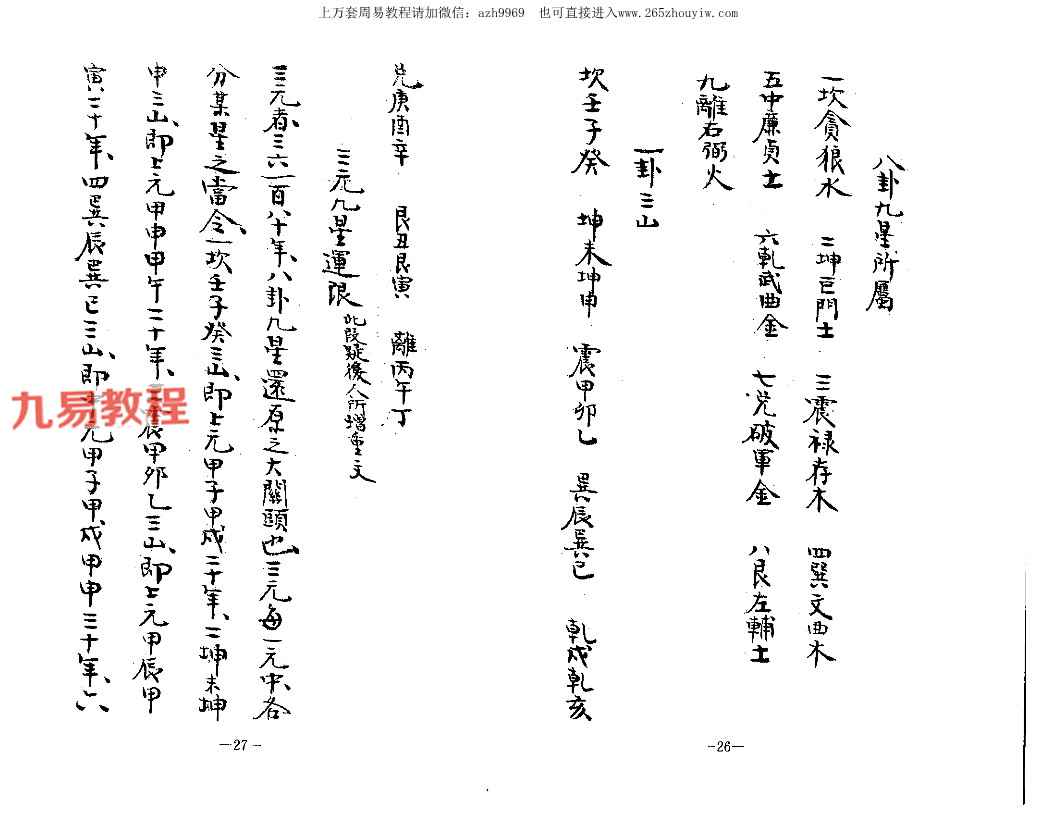 上万套周易教程请加微信：azh9969 也可直接进入www.265zhouyiw.com
八卦九星所屬
一坎貪狼水 二坤巨門土 三震禄存木 四巽文曲木
五中廉貞土 六乹武曲金 七兌破軍金 八艮左輔土
九離右弼火
一卦三山
坎壬子癸 坤未坤申 震甲卯乙 巽辰巽巳 乹戍乹亥
—26—
兌庚酉辛 艮丑艮寅 離丙午丁
三元九星運限 此段疑後人所增重文
三元者、三六一百八十年、八卦九星還原之大關頭也、三元每一元中、各
分某星之當令、一坎壬子癸三山、即上元甲子甲戍二十年、二坤未坤
申三山、即上元甲申甲午二十年、三震甲卯乙三山、即上元甲辰甲
寅二十年、四巽辰巽巳三山、即 元甲子甲戍甲申三十年、六
—27—
九易教程